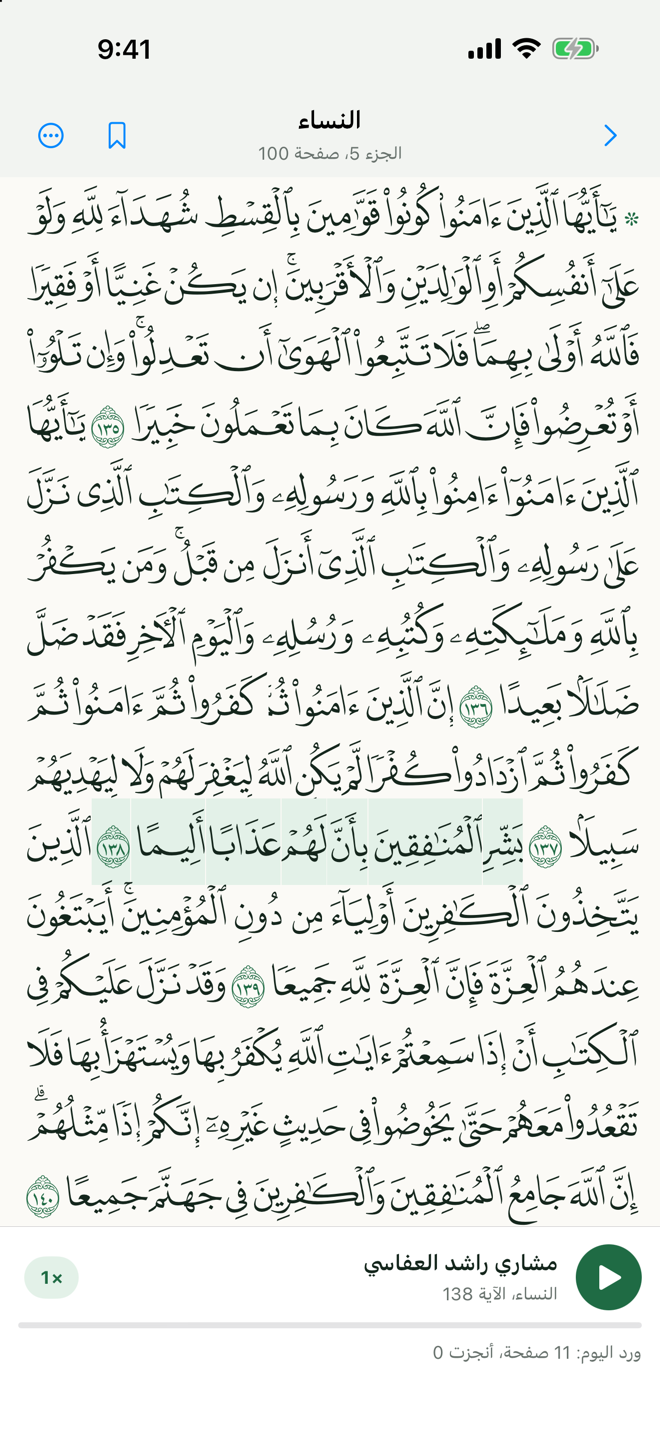 9:41
النساء
الجزء 5، صفحة 100
۞ يَٰٓأَيُّهَا ٱلَّذِينَ ءَامَنُوا۟ كُونُوا۟ قَوَّٰمِينَ بِٱلْقِسْطِ شُهَدَآءَ لِلَّهِ وَلَوْ
عَلَىٰٓ أَنفُسِكُمْ أَوِ ٱلْوَٰلِدَيْنِ وَٱلْأَقْرَبِينَ ۚ إِن يَكُنْ غَنِيًّا أَوْ فَقِيرًا
فَٱللَّهُ أَوْلَىٰ بِهِمَا ۖ فَلَا تَتَّبِعُوا۟ ٱلْهَوَىٰٓ أَن تَعْدِلُوا۟ ۚ وَإِن تَلْوُۥٓا۟
أَوْ تُعْرِضُوا۟ فَإِنَّ ٱللَّهَ كَانَ بِمَا تَعْمَلُونَ خَبِيرًا ١٣٥ يَٰٓأَيُّهَا
ٱلَّذِينَ ءَامَنُوٓا۟ ءَامِنُوا۟ بِٱللَّهِ وَرَسُولِهِۦ وَٱلْكِتَٰبِ ٱلَّذِى نَزَّلَ
عَلَىٰ رَسُولِهِۦ وَٱلْكِتَٰبِ ٱلَّذِىٓ أَنزَلَ مِن قَبْلُ ۚ وَمَن يَكْفُرْ
بِٱللَّهِ وَمَلَٰٓئِكَتِهِۦ وَكُتُبِهِۦ وَرُسُلِهِۦ وَٱلْيَوْمِ ٱلْءَاخِرِ فَقَدْ ضَلَّ
ضَلَٰلًۢا بَعِيدًا ١٣٦ إِنَّ ٱلَّذِينَ ءَامَنُوا۟ كَفَرُوا۟ ثُمَّ ءَامَنُوا۟ ثُمَّ
كَفَرُوا۟ ثُمَّ ٱزْدَادُوا۟ كُفْرًا لَّمْ يَكُنِ ٱللَّهُ لِيَغْفِرَ لَهُمْ وَلَا لِيَهْدِيَهُمْ
سَبِيلًۢا ١٣٧ بَشِّرِ ٱلْمُنَٰفِقِينَ بِأَنَّ لَهُمْ عَذَابًا أَلِيمًا ١٣٨ ٱلَّذِينَ
يَتَّخِذُونَ ٱلْكَٰفِرِينَ أَوْلِيَآءَ مِن دُونِ ٱلْمُؤْمِنِينَ ۚ أَيَبْتَغُونَ
عِندَهُمُ ٱلْعِزَّةَ فَإِنَّ ٱلْعِزَّةَ لِلَّهِ جَمِيعًا ١٣٩ وَقَدْ نَزَّلَ عَلَيْكُمْ فِى
ٱلْكِتَٰبِ أَنْ إِذَا سَمِعْتُمْ ءَايَٰتِ ٱللَّهِ يُكْفَرُ بِهَا وَيُسْتَهْزَأُ بِهَا فَلَا
تَقْعُدُوا۟ مَعَهُمْ حَتَّىٰ يَخُوضُوا۟ فِى حَدِيثٍ غَيْرِهِۦٓ ۚ إِنَّكُمْ إِذًا مِّثْلُهُمْ ۗ
إِنَّ ٱللَّهَ جَامِعُ ٱلْمُنَٰفِقِينَ وَٱلْكَٰفِرِينَ فِى جَهَنَّمَ جَمِيعًا ١٤٠
مشاري راشد العفاسي
النساء، الآية 138
1×
ورد اليوم: 11 صفحة، أنجزت 0